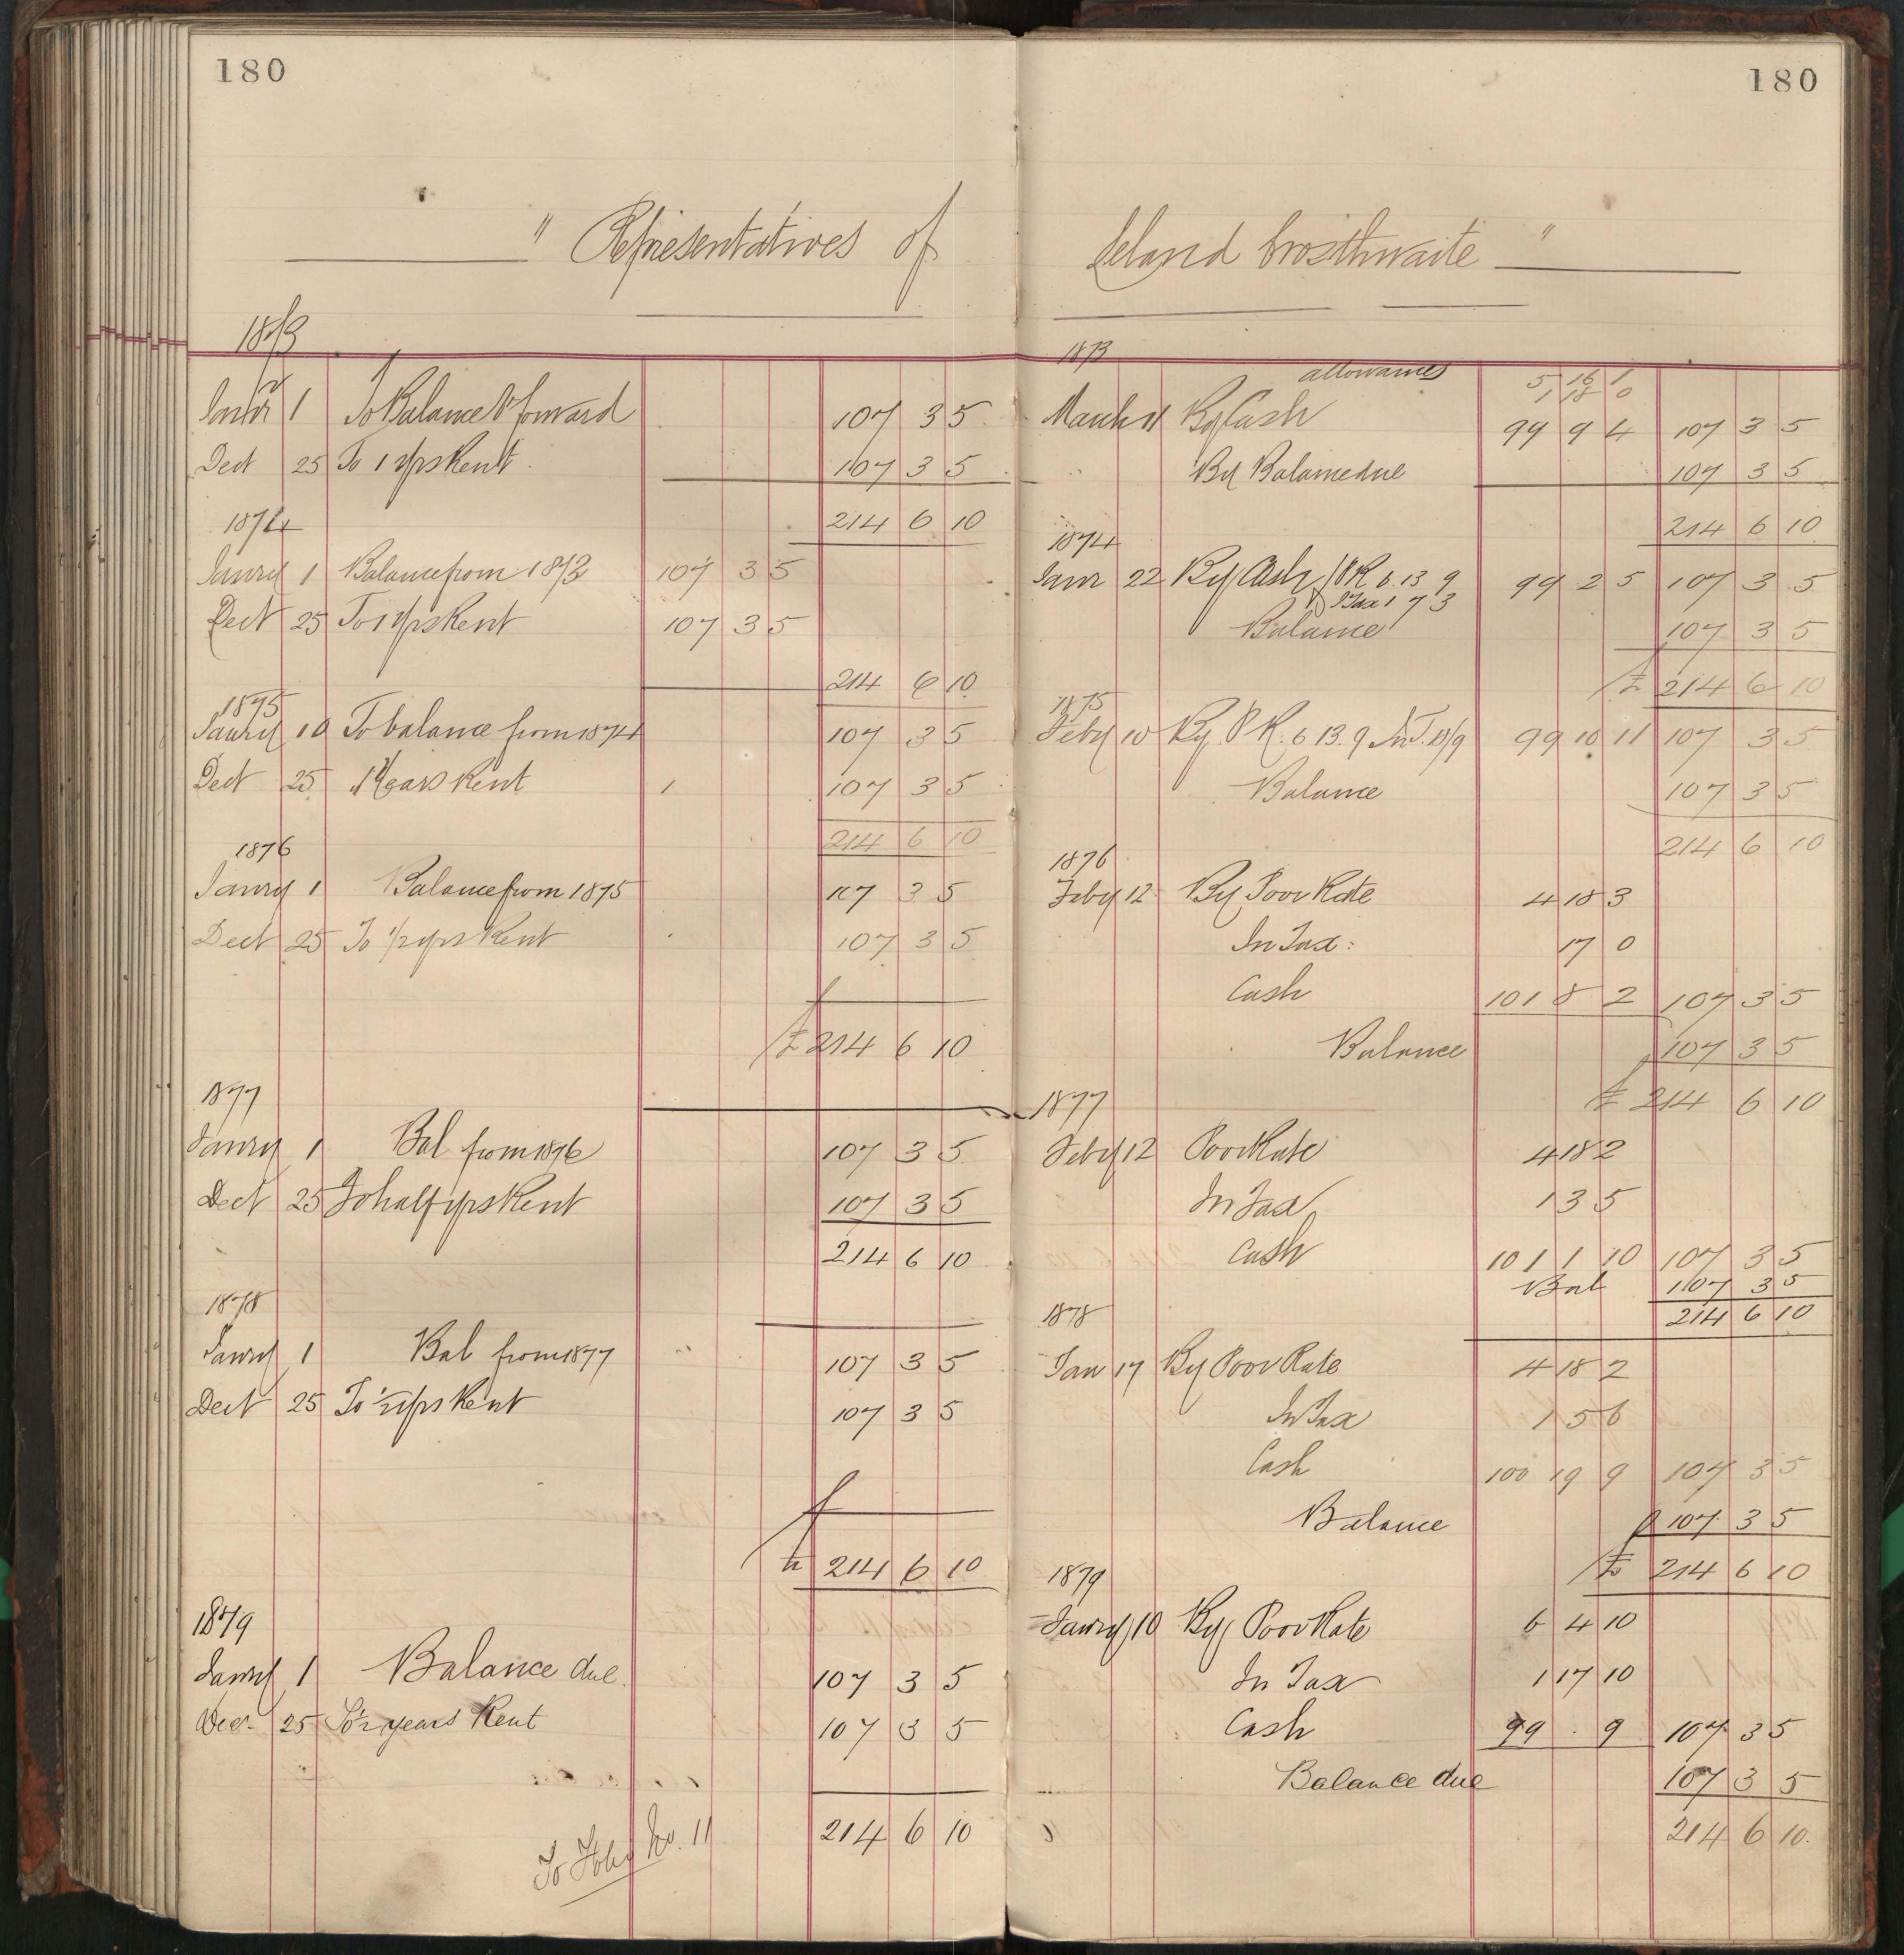 180
" Representatives of
1873
Janry 1 To Balance forward 107 3 5
Dect 25 To 1 yrs Rent 107 3 5
214 6 10
1874
Janry 1 Balance from 1873 107 3 5
Dect 25 To 1 yrs Rent 107 3 5
214 6 10
1875
Janry 10 To balance from 1874 107 3 5
Dect 25 1 Years Rent 107 3 5
214 6 10
1876
Janry 1 Balance from 1875 107 3 5
Dect 25 To 1/2 yrs Rent 107 3 5
£ 214 6 10
1877
Janry 1 Bal from 1876 107 3 5
Dect 25 To half yrs Rent 107 3 5
214 6 10
1878
Janry 1 Bal from 1877 107 3 5
Dect 25 To 1/2 yrs Rent 107 3 5
£ 214 6 10
1879
Janry 1 Balance due 107 3 5
Dec 25 To 1/2 years Rent 107 3 5
214 6 10
To Folio No. 11
180
Leland Crosthwaite "
1873
allowances 5 16 1
1 18 0
March 11 By Cash 99 9 4 107 3 5
By Balance due 107 3 5
214 6 10
1874
Janr 22 By Cash PR 6. 13 9 99 2 5 107 3 5
I Tax 1 7 3
Balance 107 3 5
£ 214 6 10
1875
Feby 10 By P R. 6 13. 9 In T. 18/9 99 10 11 107 3 5
Balance 107 3 5
214 6 10
1876
Feby 12 By Poor Rate 4 18 3
In Tax: 17 0
Cash 101 8 2 107 3 5
Balance 107 3 5
£ 214 6 10
1877
Feby 12 Poor Rate 4 18 2
In Tax 1 3 5
Cash 101 1 10 107 3 5
Bal 107 3 5
214 6 10
1878
Jan 17 By Poor Rate 4 18 2
In Tax 1 5 6
Cash 100 19 9 107 3 5
Balance 107 3 5
£ 214 6 10
1879
Janry 10 By Poor Rate 6 4 10
In Tax 1 17 10
Cash 99 . 9 107 3 5
Balance due 107 3 5
214 6 10.